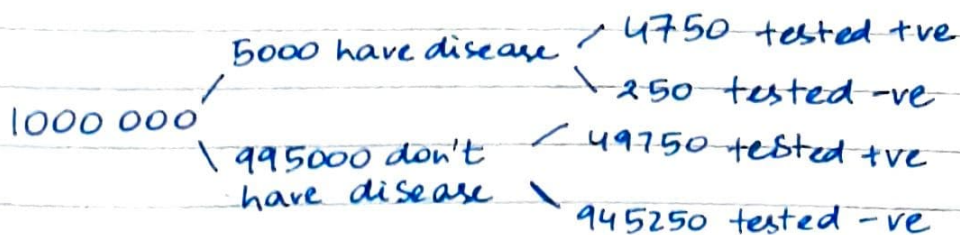 5000 have disease
4750 tested +ve
250 tested -ve
1000 000
995000 don't
have disease
49750 tested +ve
945250 tested -ve